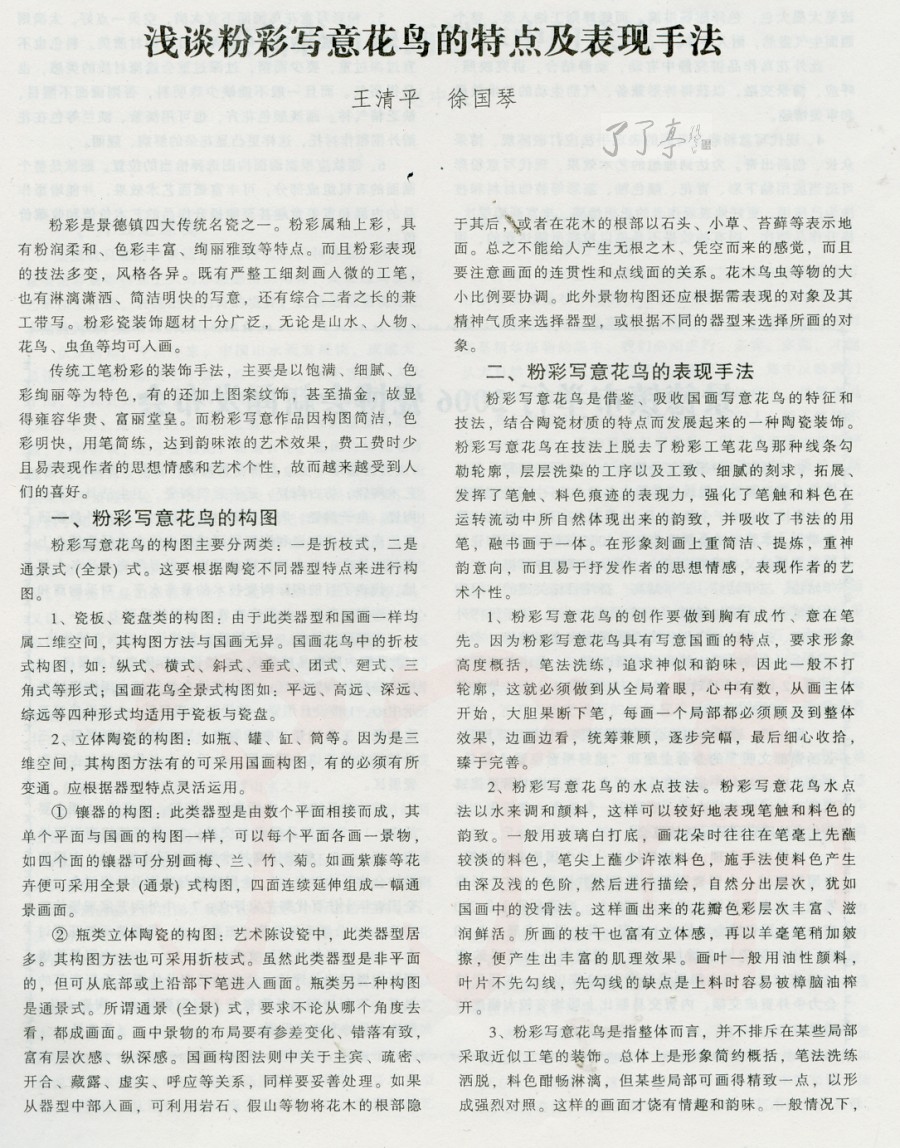 浅谈粉彩写意花鸟的特点及表现手法
王清平　徐国琴
了了亭
粉彩是景德镇四大传统名瓷之一。粉彩属釉上彩，具
有粉润柔和、色彩丰富、绚丽雅致等特点。而且粉彩表现
的技法多变，风格各异。既有严整工细刻画入微的工笔，
也有淋漓潇洒、简洁明快的写意，还有综合二者之长的兼
工带写。粉彩瓷装饰题材十分广泛，无论是山水、人物、
花鸟、虫鱼等均可入画。
传统工笔粉彩的装饰手法，主要是以饱满、细腻、色
彩绚丽等为特色，有的还加上图案纹饰，甚至描金，使显
得雍容华贵、富丽堂皇。而粉彩写意作品因构图简洁，色
彩明快，用笔简练，达到韵味浓的艺术效果，费工费时少
且易表现作者的思想情感和艺术个性，故而越来越受到人
们的喜好。
一、粉彩写意花鸟的构图
粉彩写意花鸟的构图主要分两类：一是折枝式，二是
通景式 (全景) 式。这要根据陶瓷不同器型特点来进行构
图。
1、瓷板、瓷盘类的构图：由于此类器型和国画一样均
属二维空间，其构图方法与国画无异。国画花鸟中的折枝
式构图，如：纵式、横式、斜式、垂式、团式、廻式、三
角式等形式；国画花鸟全景式构图如：平远、高远、深远、
综远等四种形式均适用于瓷板与瓷盘。
2、立体陶瓷的构图：如瓶、罐、缸、筒等。因为是三
维空间，其构图方法有的可采用国画构图，有的必须有所
变通。应根据器型特点灵活运用。
① 镶器的构图：此类器型是由数个平面相接而成，其
单个平面与国画的构图一样，可以每个平面各画一景物，
如四个面的镶器可分别画梅、兰、竹、菊。如画紫藤等花
卉便可采用全景 (通景) 式构图，四面连续延伸组成一幅通
景画面。
② 瓶类立体陶瓷的构图：艺术陈设瓷中，此类器型居
多。其构图方法也可采用折枝式。虽然此类器型是非平面
的，但可从底部或上沿部下笔进入画面。瓶类另一种构图
是通景式。所谓通景 (全景) 式，要求不论从哪个角度去
看，都成画面。画中景物的布局要有参差变化、错落有致，
富有层次感、纵深感。国画构图法则中关于主宾、疏密、
开合、藏露、虚实、呼应等关系，同样要妥善处理。如果
从器型中部入画，可利用岩石、假山等物将花木的根部隐
于其后，或者在花木的根部以石头、小草、苔藓等表示地
面。总之不能给人产生无根之木、凭空而来的感觉，而且
要注意画面的连贯性和点线面的关系。花木鸟虫等物的大
小比例要协调。此外景物构图还应根据需表现的对象及其
精神气质来选择器型，或根据不同的器型来选择所画的对
象。
二、粉彩写意花鸟的表现手法
粉彩写意花鸟是借鉴、吸收国画写意花鸟的特征和
技法，结合陶瓷材质的特点而发展起来的一种陶瓷装饰。
粉彩写意花鸟在技法上脱去了粉彩工笔花鸟那种线条勾
勒轮廓，层层洗染的工序以及工致、细腻的刻求，拓展、
发挥了笔触、料色痕迹的表现力，强化了笔触和料色在
运转流动中所自然体现出来的韵致，并吸收了书法的用
笔，融书画于一体。在形象刻画上重简洁、提炼，重神
韵意向，而且易于抒发作者的思想情感，表现作者的艺
术个性。
1、粉彩写意花鸟的创作要做到胸有成竹、意在笔
先。因为粉彩写意花鸟具有写意国画的特点，要求形象
高度概括，笔法洗练，追求神似和韵味，因此一般不打
轮廓，这就必须做到从全局着眼，心中有数，从画主体
开始，大胆果断下笔，每画一个局部都必须顾及到整体
效果，边画边看，统筹兼顾，逐步完幅，最后细心收拾，
臻于完善。
2、粉彩写意花鸟的水点技法。粉彩写意花鸟水点
法以水来调和颜料，这样可以较好地表现笔触和料色的
韵致。一般用玻璃白打底，画花朵时往往在笔毫上先蘸
较淡的料色，笔尖上蘸少许浓料色，施手法使料色产生
由深及浅的色阶，然后进行描绘，自然分出层次，犹如
国画中的没骨法。这样画出来的花瓣色彩层次丰富、滋
润鲜活。所画的枝干也富有立体感，再以羊毫笔稍加皴
擦，便产生出丰富的肌理效果。画叶一般用油性颜料，
叶片不先勾线，先勾线的缺点是上料时容易被樟脑油榨
开。
3、粉彩写意花鸟是指整体而言，并不排斥在某些局部
采取近似工笔的装饰。总体上是形象简约概括，笔法洗练
洒脱，料色酣畅淋漓，但某些局部可画得精致一点，以形
成强烈对照。这样的画面才饶有情趣和韵味。一般情况下，